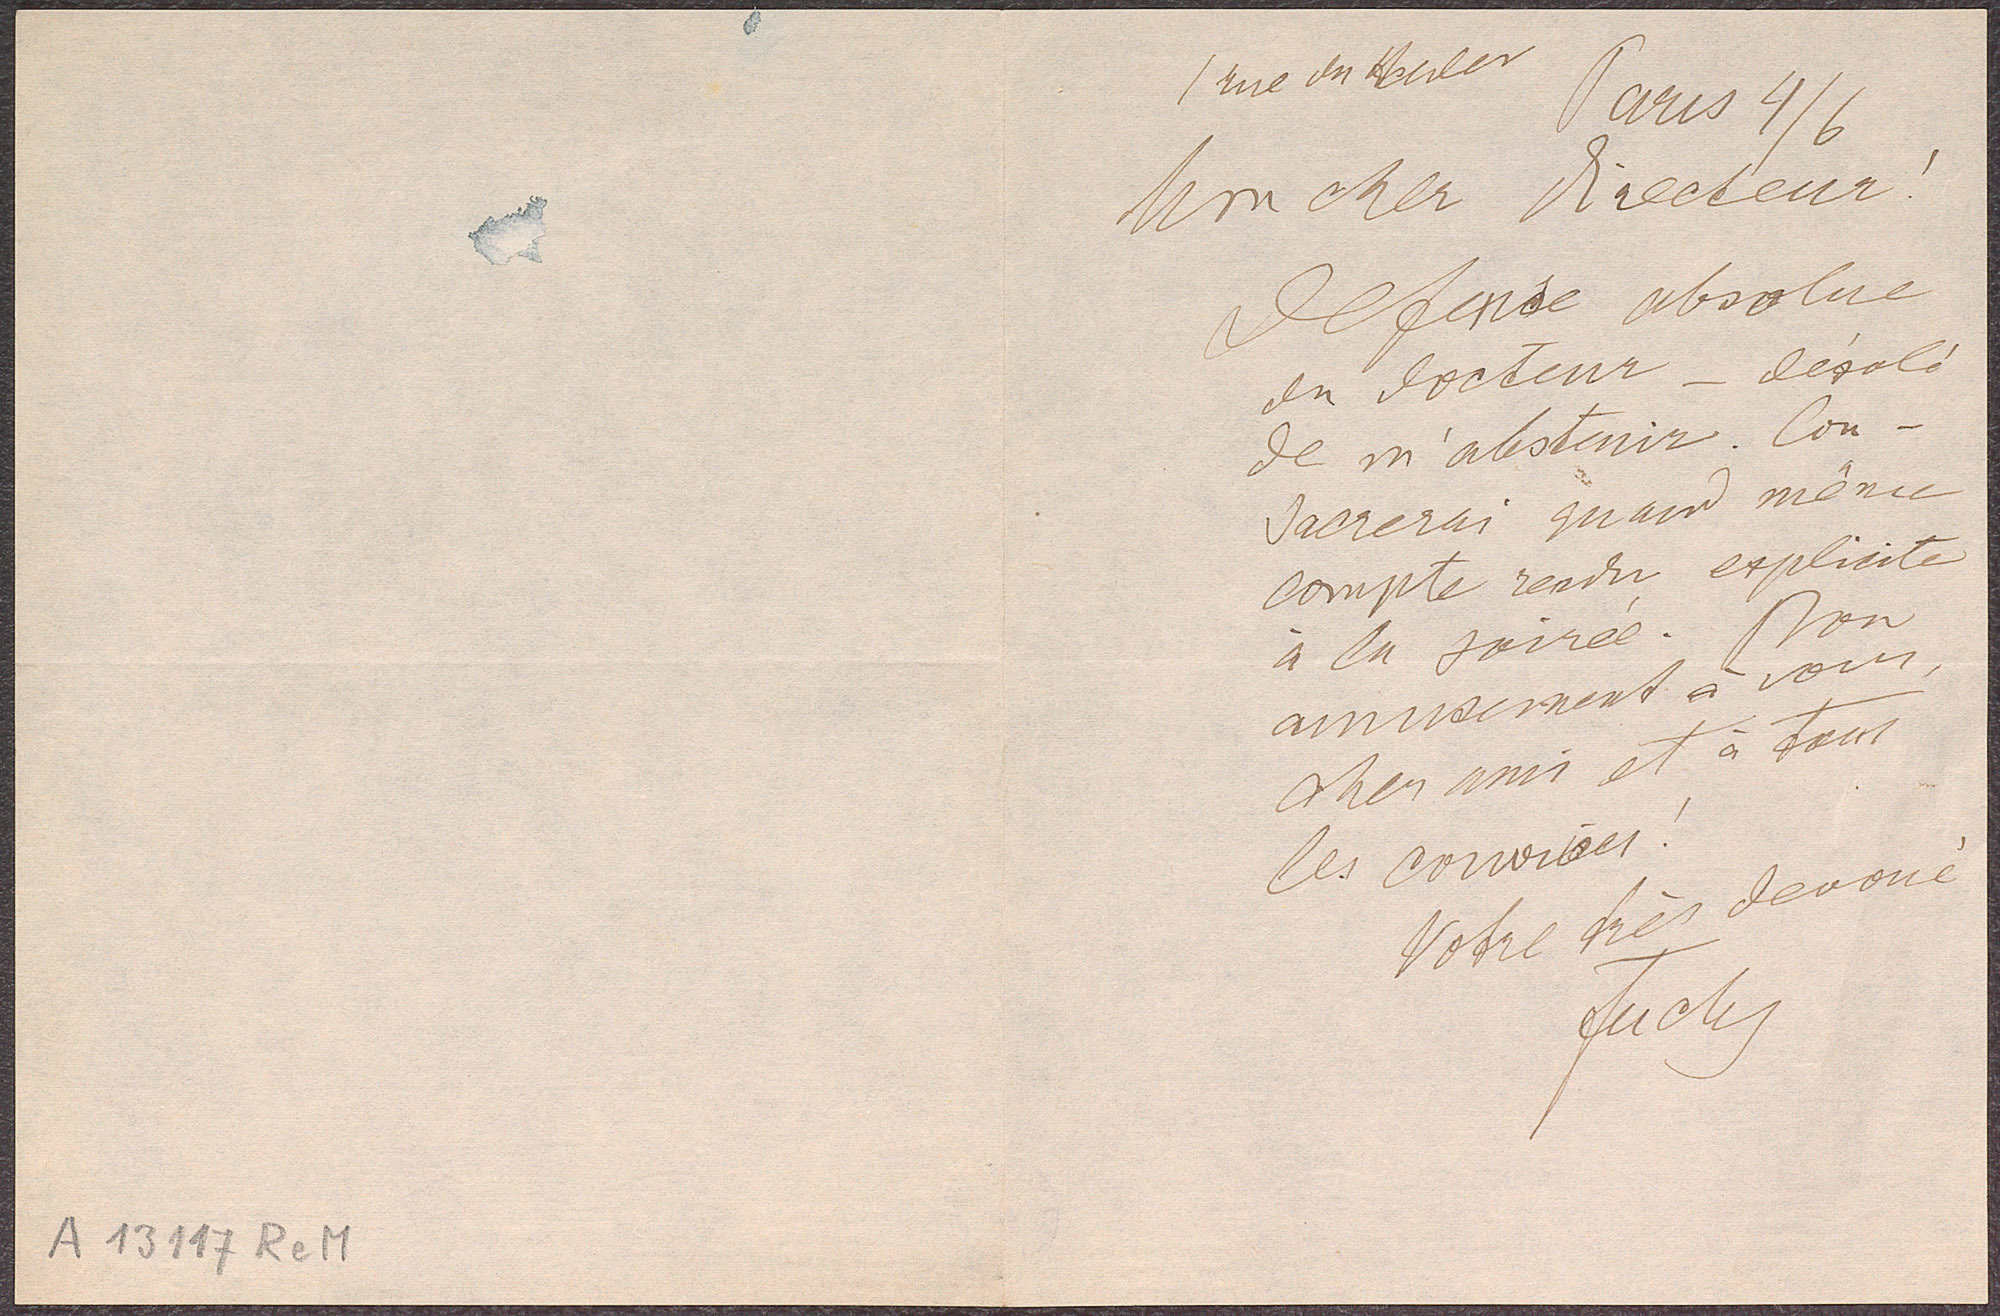 1 rue du Helder
Paris 4/6
Mon cher Directeur!
Defense absolue
du docteur – désolé
de m'abstenir. Con-
sacrerai quand même
compte rendu explicite
à la soirée. Bon
amusement à vous,
cher ami et à tous
les convives!
Votre très devoué
Fuchs
A 13117 ReM